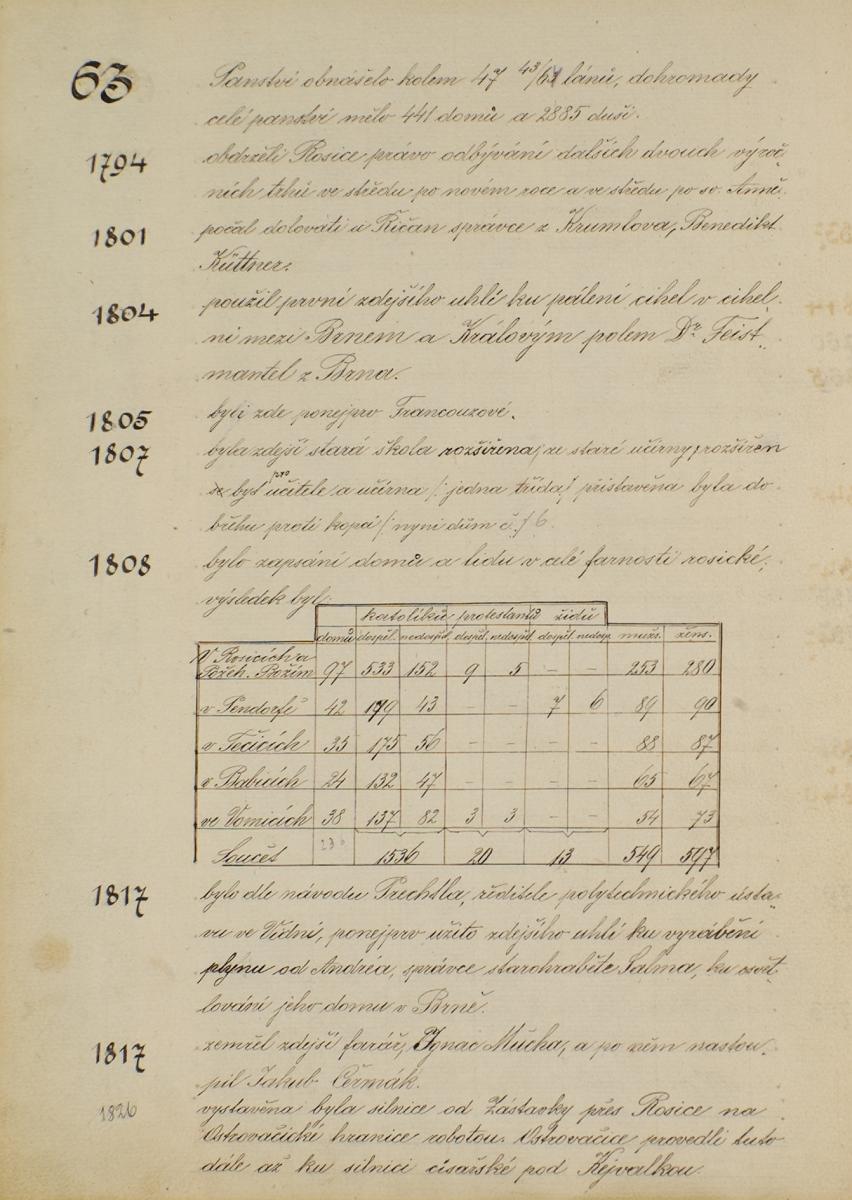 63
Panství obnášelo kolem 47 43/64 lánů, dohromady
celé panství mělo 441 domů a 2885 duší.
1794 obdrželi Rosice právo odbývání dalších dvouch výroč-
ních trhů ve středu po novém roce a ve středu po sv. Anně.
1801 počal dolovati u Říčan správce z Krumlova, Benedikt
Küttner.
1804 použil první zdejšího uhlí ku pálení cihel v cihel-
ni mezi Brnem a Královým polem Dr. Feist-
mantel z Brna.
1805 byli zde ponejprv Francouzové.
1807 byla zdejší stará škola rozšířena, ze staré učírny rozšířen
byt pro učitele a učírna /: jedna třída :/ přistavěna byla do
břehu proti kopci /: nyní dům č. 6.
1808 bylo zapsání domů a lidu v celé farnosti rosické,
výsledek byl:
katolíků protestantů židů
domů dospěl. nedospěl. dospěl. nedospěl. dospěl. nedosp. mužs. žens.
V Rosicích a
Pořík 97 533 152 9 5 – – 253 280
v Pendorfě 42 179 43 – – 7 6 89 90
v Tečicích 35 175 56 – – – – 88 87
v Babicích 24 132 47 – – – – 65 67
ve Vomicích 38 137 82 3 3 – – 54 73
Součet 23 1536 20 13 549 597
1817 bylo dle návodu Prechtla, ředitele polytechnického ústa-
vu ve Vídni, ponejprv užito zdejšího uhlí ku vyrábění
plynu od Andréa, správce starohraběte Salma, ku osvět-
lování jeho domu v Brně.
1817 zemřel zdejší farář, Ignac Mucha, a po něm nastou-
pil Jakub Čermák.
1826 vystavěna byla silnice od Zástavky přes Rosice na
Ostrovačické hranice robotou. Ostrovačice provedli tuto
dále až ku silnici císařské pod Kejvalkou.